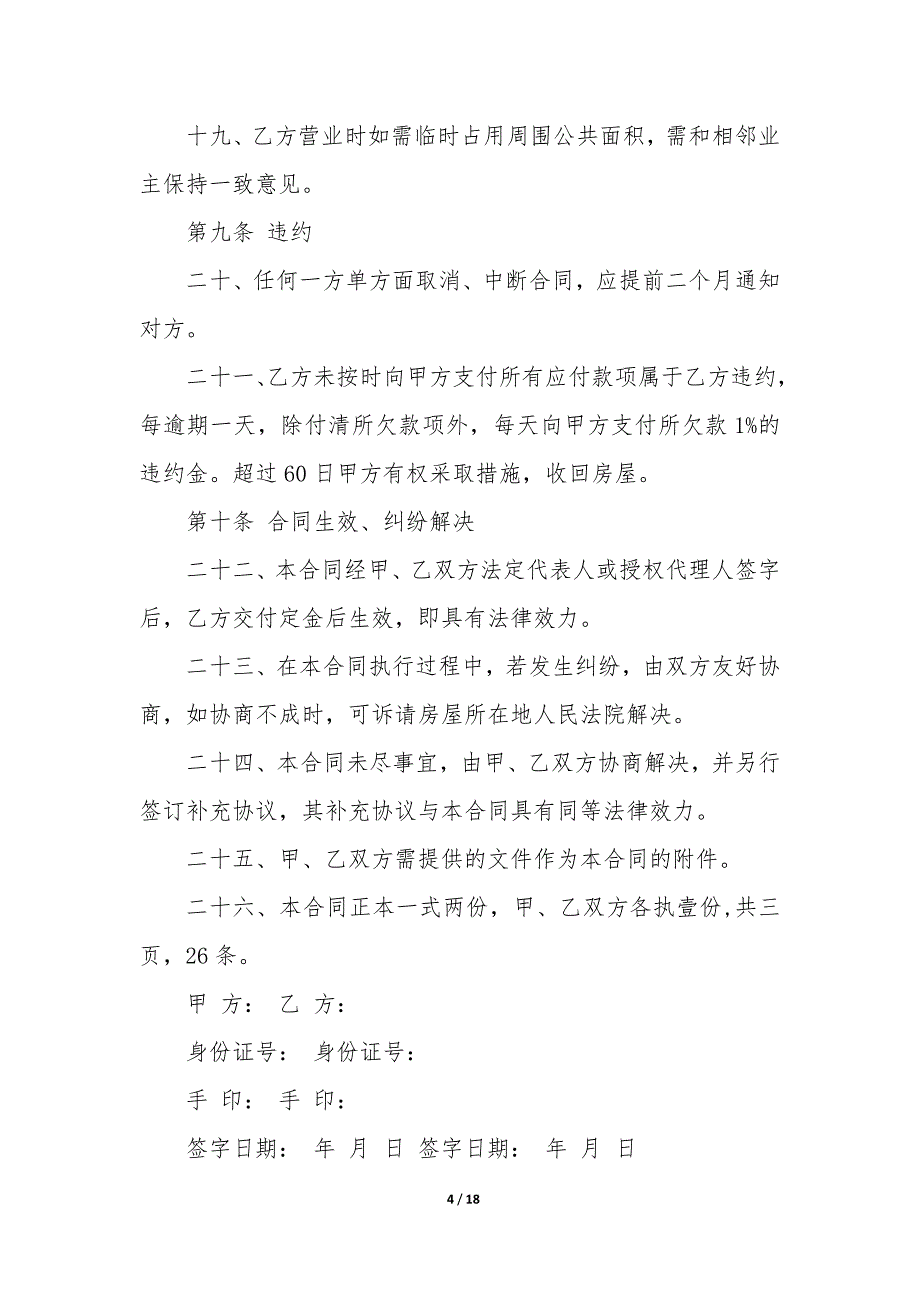 十九、乙方营业时如需临时占用周围公共面积，需和相邻业
主保持一致意见。
第九条 违约
二十、任何一方单方面取消、中断合同，应提前二个月通知
对方。
二十一、乙方未按时向甲方支付所有应付款项属于乙方违约，
每逾期一天，除付清所欠款项外，每天向甲方支付所欠款 1%的
违约金。超过 60 日甲方有权采取措施，收回房屋。
第十条 合同生效、纠纷解决
二十二、本合同经甲、乙双方法定代表人或授权代理人签字
后，乙方交付定金后生效，即具有法律效力。
二十三、在本合同执行过程中，若发生纠纷，由双方友好协
商，如协商不成时，可诉请房屋所在地人民法院解决。
二十四、本合同未尽事宜，由甲、乙双方协商解决，并另行
签订补充协议，其补充协议与本合同具有同等法律效力。
二十五、甲、乙双方需提供的文件作为本合同的附件。
二十六、本合同正本一式两份，甲、乙双方各执壹份,共三
页，26 条。
甲 方： 乙 方：
身份证号： 身份证号：
手 印： 手 印：
签字日期： 年 月 日 签字日期： 年 月 日
4 / 18